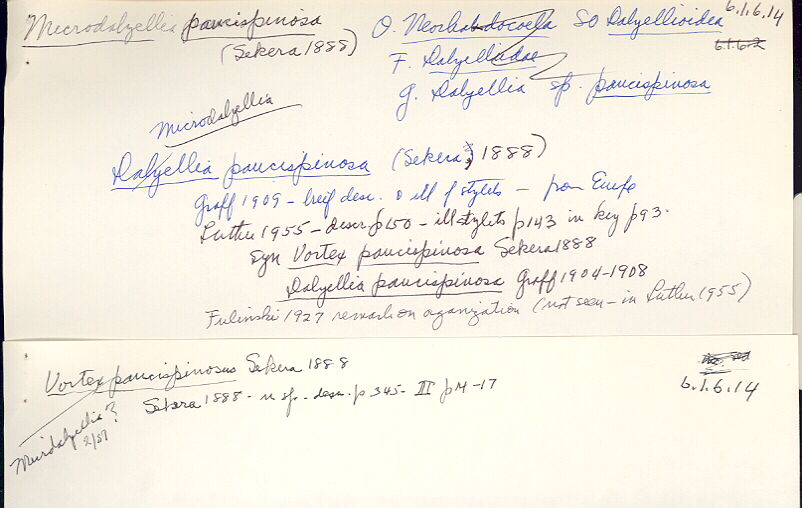 Microdalyellia paucispinosa
(Sekera 1888)
O. Neorhabdocoela SO Dalyellioidea
6.1.6.14
6.1.6.2
F. Dalyelliidae
G. Dalyellia sp. paucispinosa
Microdalyellia
Dalyellia paucispinosa (Sekera, 1888)
Graff 1909 - breif desc. & ill of stylets - from Europe
Luther 1955 - descr p150 - ill stylets p143 in key p93.
Syn Vortex paucispinosa Sekera 1888
Dalyellia paucispinosa Graff 1904-1908
Fulinski 1927 remark on organization (not seen - in Luther 1955)
Vortex paucispinosus Sekera 1888
6.1.6.14
Sekera 1888 - n sp. - descr. p 345 - III p 14-17
Microdalyellia?
2/57